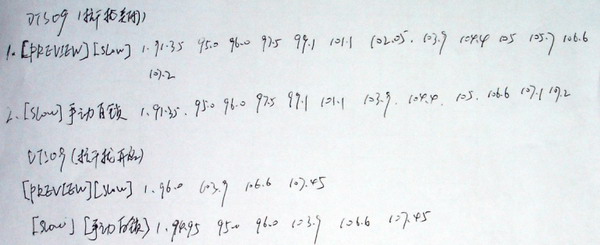 DTS09 (抗干扰关闭)
1. [PREVIEW][Slow] 1. 91.35 95.0 96.0 97.5 99.1 101.1 102.05. 103.9 104.4 105 105.7 106.6
107.2
2. [Slow] 手动自锁 1. 91.35. 95.0 96.0 97.5 99.1 101.1 103.9. 104.4. 105. 106.6 107.1 107.2
DTS09 (抗干扰开启)
[PREVIEW][Slow] 1. 96.0 103.9 106.6 107.45
[Slow] [手动自锁] 1. 94.95 95.0 96.0 103.9 106.6 107.45